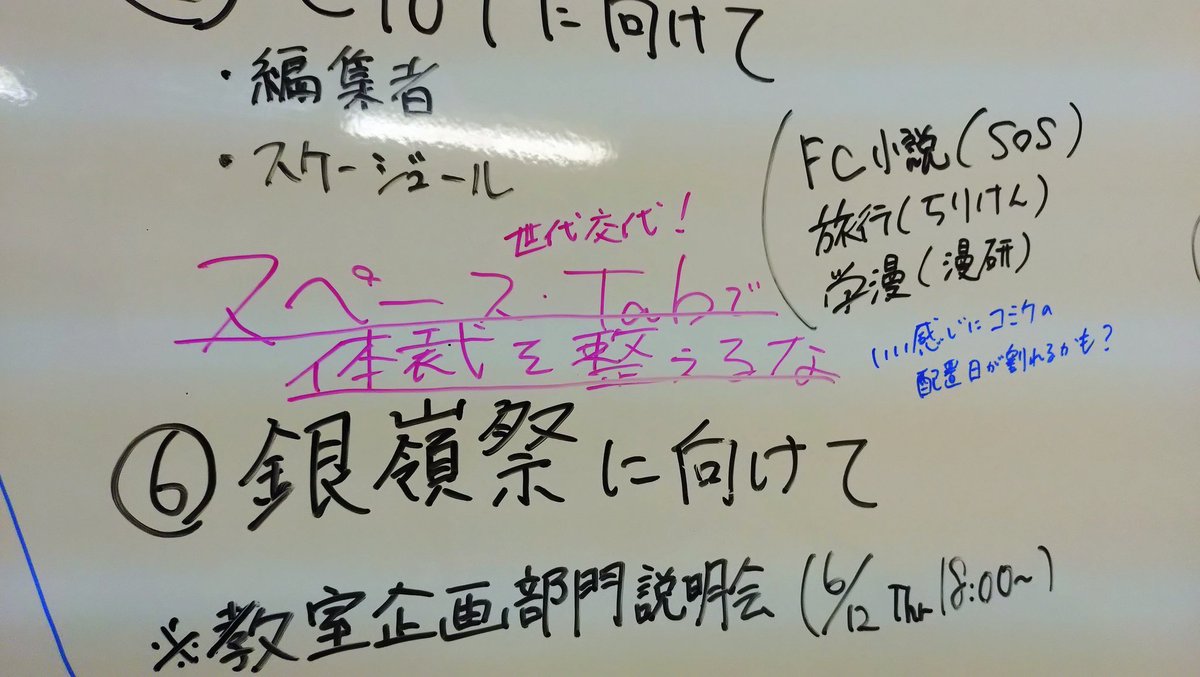 C107に向けて
・編集者
・スケージュール
世代交代！
スペース・Tabで
体裁を整えるな
FC小説(SOS)
旅行(ちりけん)
学漫(漫研)
いい感じにコミケの
配置日が割れるかも？
⑥銀嶺祭に向けて
※教室企画部門説明会 (6/12 Thu 18:00~)